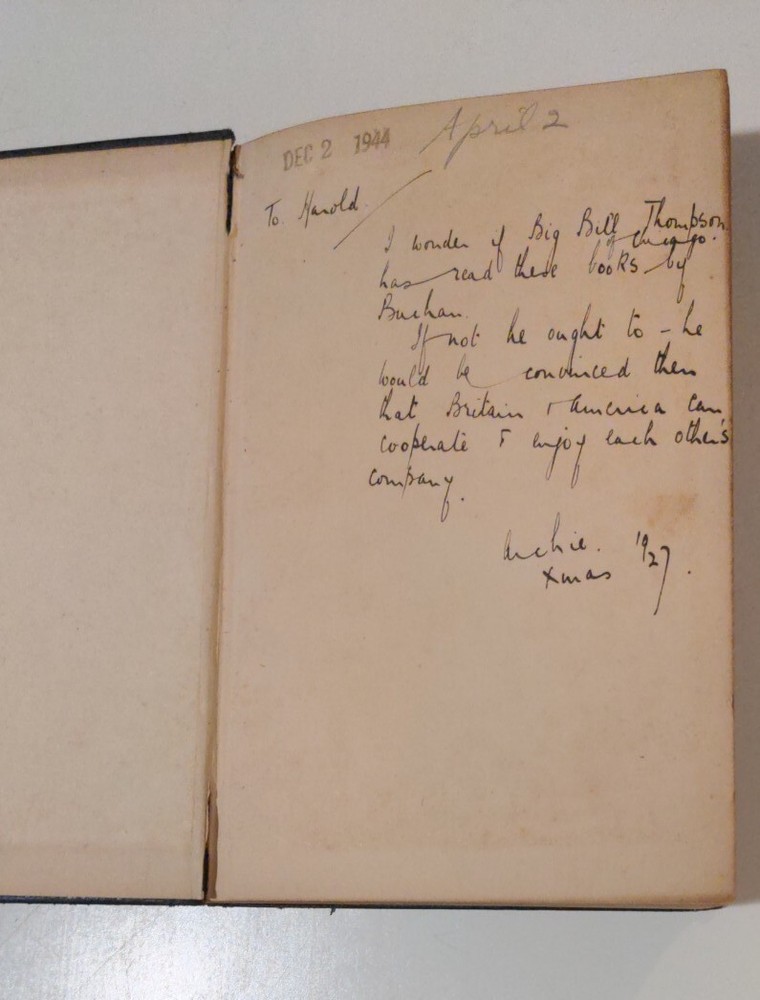 DEC 2 1944 April 2
To Harold.
I wonder if Big Bill Thompson
of Chicago.
has read these books by
Buchan.
If not he ought to – he
would be convinced then
that Britain + America can
cooperate & enjoy each other's
company.
Archie. '927.
Xmas